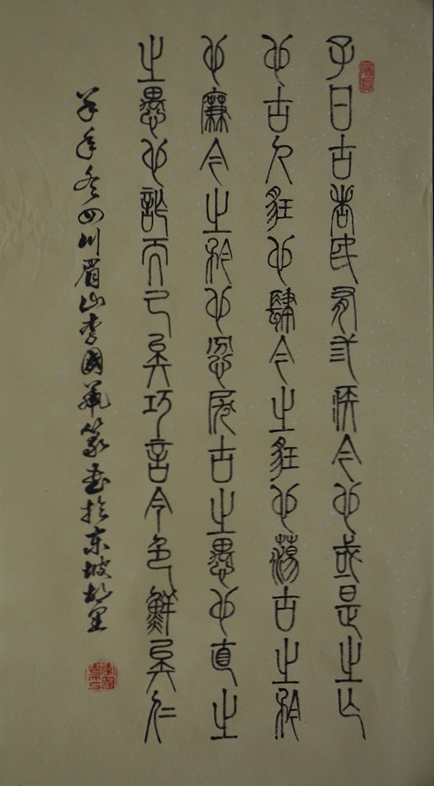 子曰古者民有弎疾今也或是之亡
也古之狂也肆今之狂也蕩古之矜
也廉今之矜也忿戾古之愚也直之
之愚也詐而已矣巧言令色鮮矣仁
羊年冬四川眉山李國篆书於东坡故里